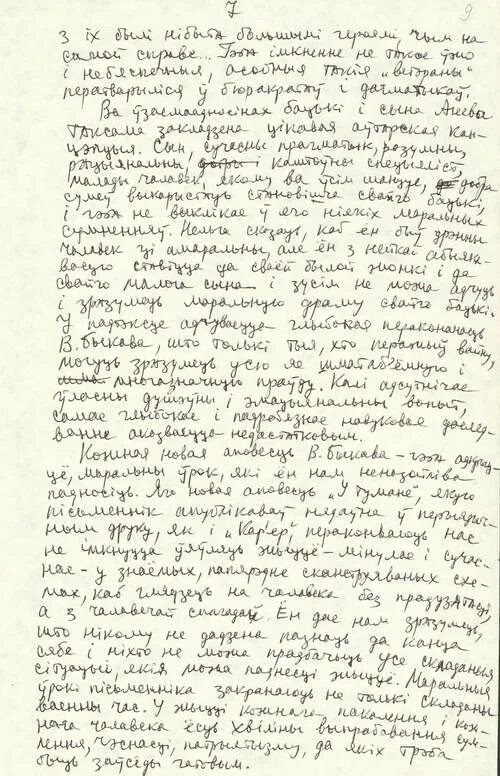 7
9
з іх былі нібыта большымі героямі, чым на
самой справе... Гэта імкненне не такое ўжо
і небяспечныя, асобныя такія „ветэраны"
ператварыліся ў бюракратаў і дагматыкаў.
Ва ўзаемаадносінах бацькі і сына Агеева
таксама закладзена цікавая аўтарская кан-
цэпцыя. Сын, сучасны прагматык, разумны,
рацыянальны, і каштоўны спецыяліст,
малады чалавек, якому ва ўсім шанцуе, добра
сумеў выкарыстаць становішча свайго бацькі,
і гэта не выклікае ў яго ніякіх маральных
сумненняў. Нельга сказаць, каб ён быў дрэнны
чалавек ці амаральны, але ён з нейкай абыяка-
васцю ставіцца да сваёй былой жонкі і да
свайго малога сына і зусім не можа адчуць
і зразумець маральную драму свайго бацькі.
У падтэксце адчуваецца глыбокая перакананасць
В. Быкава, што толькі тыя, хто перажыў вайну,
могуць зразумець усю яе шматаб'ёмную і
многазначную праўду. Калі адсутнічае
ўласны душэўны і эмацыянальны вопыт,
самае глыбокае і падрабязнае навуковае даслед-
ванне аказваецца недастатковым.
Кожная новая аповесць В. Быкава – гэта адкрыц-
цё, маральны ўрок, які ён нам неназойліва
падносіць. Яго новая аповесць „У тумане", якую
пісьменнік апублікаваў нядаўна ў перыядыч-
ным друку, як і „Кар'ер", пераконваюць нас
не імкнуцца ўяўляць жыццё – мінулае і сучас-
нае – у знаёмых, папярэдне сканструяваных схе-
мах, каб глядзець на чалавека без прадузятасці,
а з чалавечай спагадай. Ён дае нам зразумець,
што нікому не дадзена пазнаць да канца
сябе і ніхто не можа прадбачыць усе складаныя
сітуацыі, якія можа паднесці жыццё. Маральныя
ўрокі пісьменніка закранаюць не толькі складаны
ваенны час. У жыцці кожнага пакалення і кож-
нага чалавека ёсць хвіліны выпрабавання сум-
лення, чэснасці, патрыятызму, да якіх трэба
быць заўсёды гатовым.